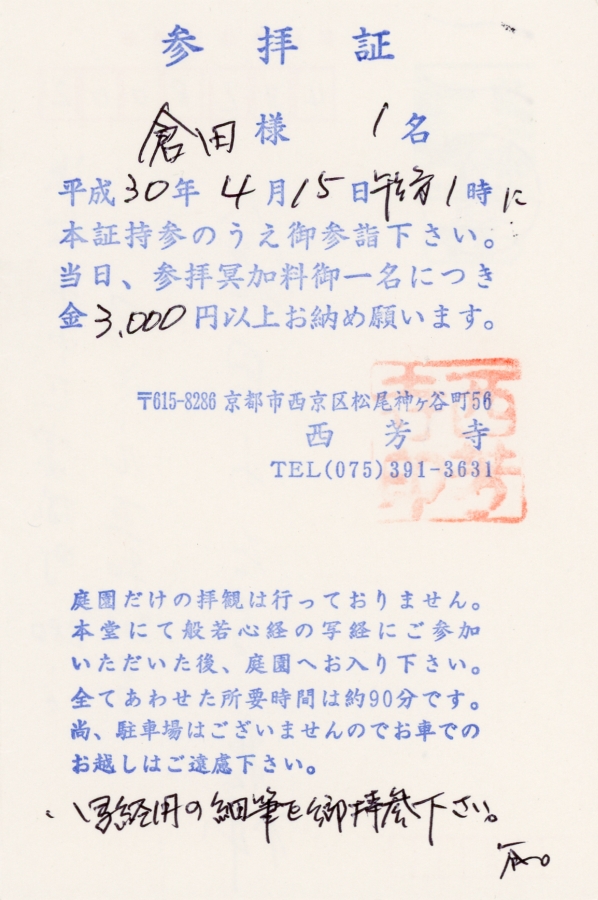 参拝証
倉田様 1名
平成30年4月15日午后1時に
本証持参のうえ御参詣下さい。
当日、参拝冥加料御一名につき
金3,000円以上お納め願います。
〒615-8286 京都市西京区松尾神ヶ谷町56
西芳寺
TEL(075)391-3631
庭園だけの拝観は行っておりません。
本堂にて般若心経の写経にご参加
いただいた後、庭園へお入り下さい。
全てあわせた所要時間は約90分です。
尚、駐車場はございませんのでお車での
お越しはご遠慮下さい。
、写経用の細筆を御持参下さい。